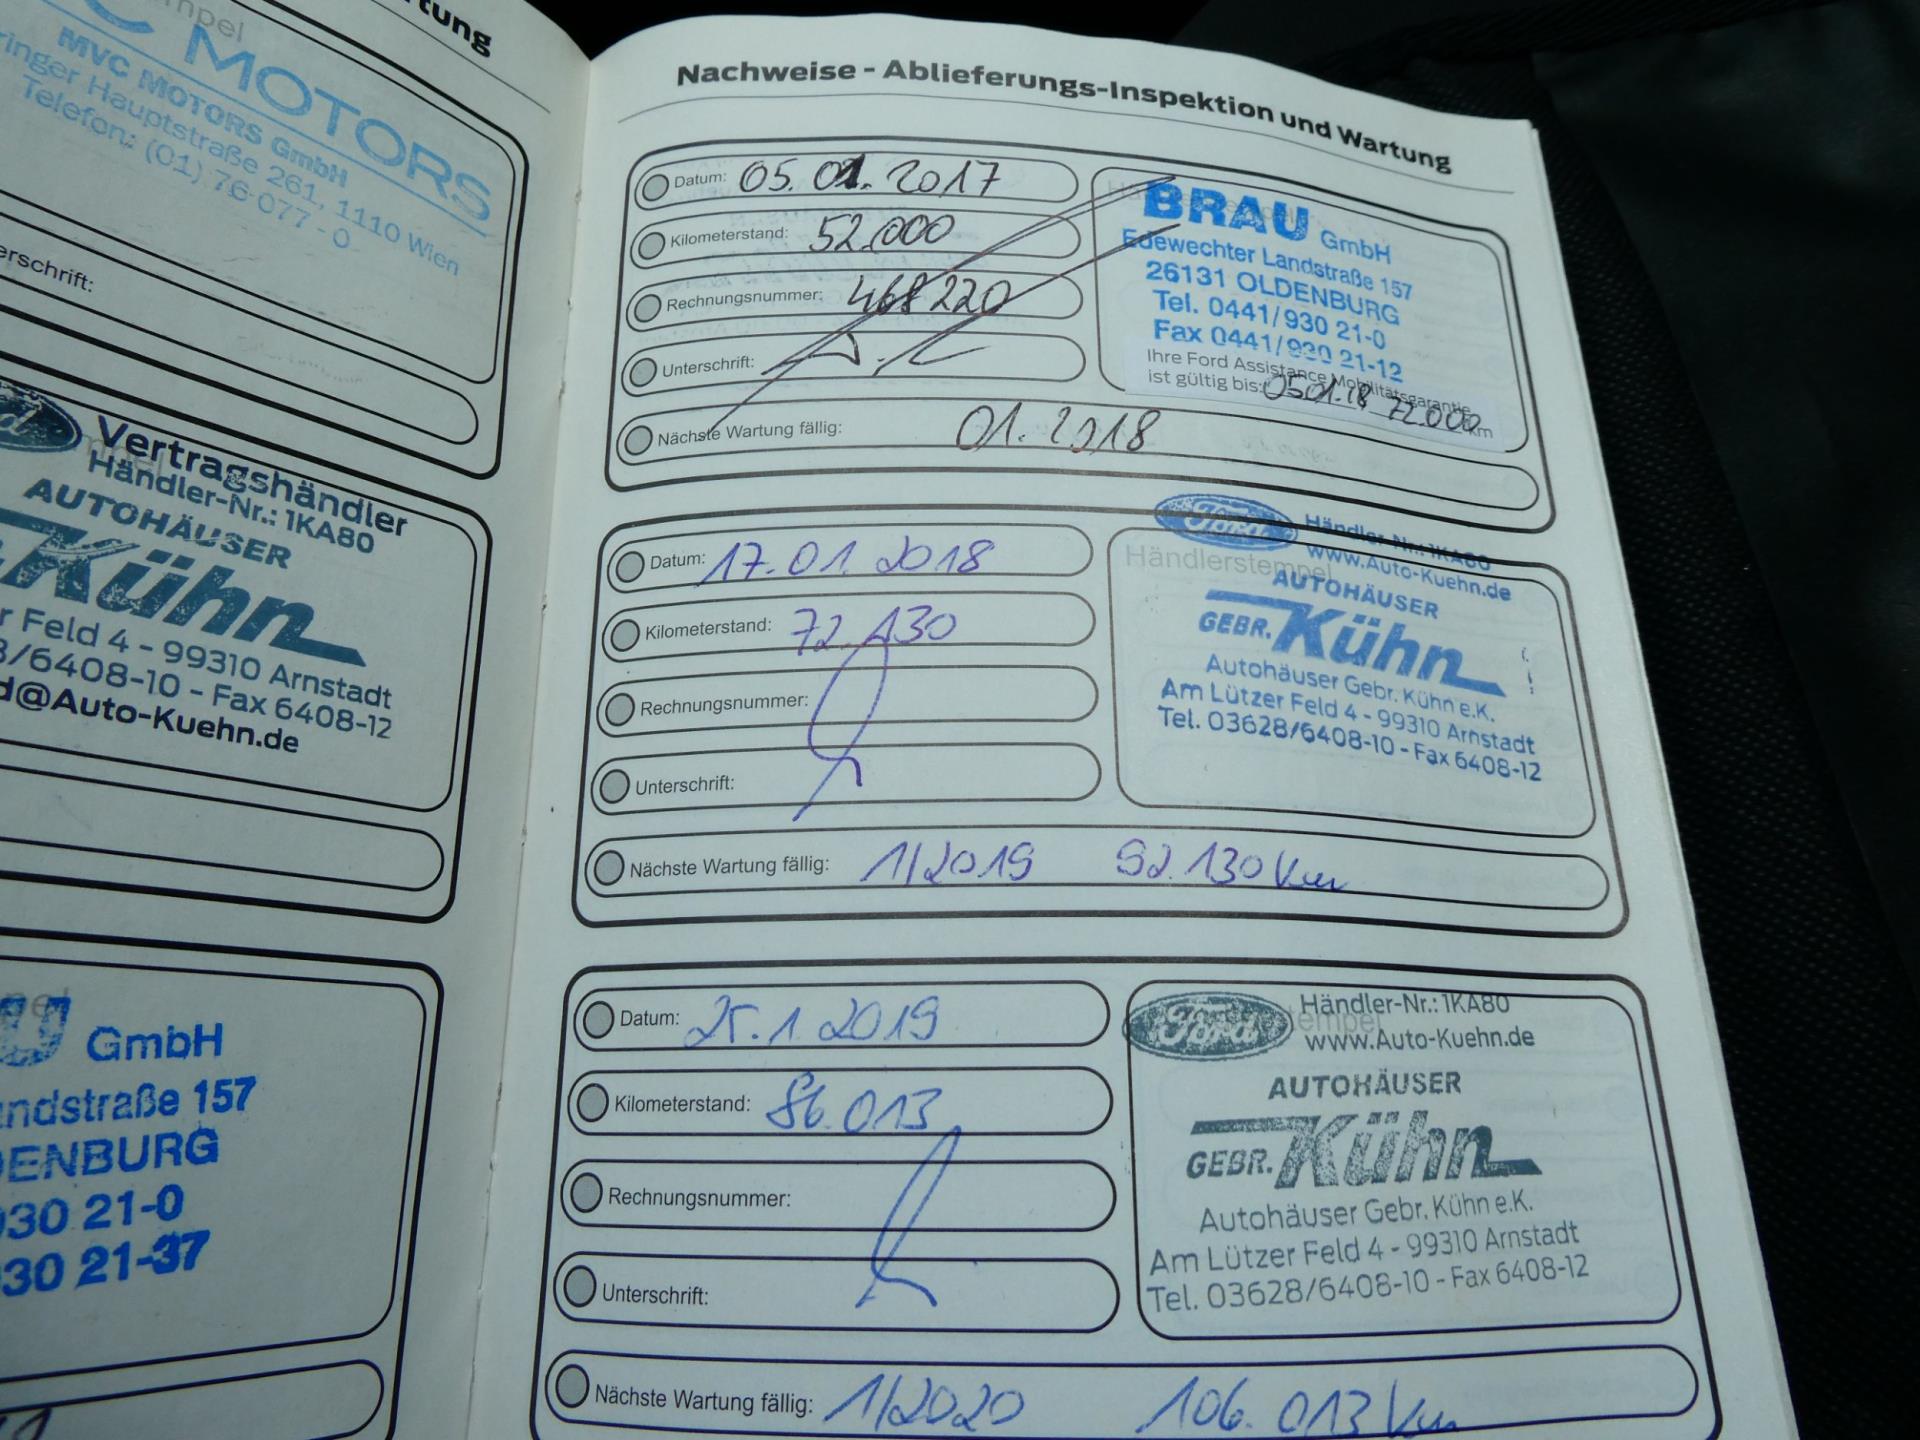 rtung
C MOTORS
MVC MOTORS GmbH
ringer Hauptstraße 261, 1110 Wien
Telefon: (01) 76-077 - 0
erschrift:
Ford
Vertragshändler
Händler-Nr.: 1KA80
AUTOHÄUSER
Kühn
r Feld 4 - 99310 Arnstadt
8/6408-10 - Fax 6408-12
d@Auto-Kuehn.de
U GmbH
andstraße 157
DENBURG
930 21-0
930 21-37
Nachweise - Ablieferungs-Inspektion und Wartung
Datum: 05.01.2017
Kilometerstand: 52.000
Rechnungsnummer: 468220
Unterschrift:
Nächste Wartung fällig: 01.2018
BRAU GmbH
Edewechter Landstraße 157
26131 OLDENBURG
Tel. 0441/930 21-0
Fax 0441/930 21-12
Ihre Ford Assistance Mobilitätsgarantie
ist gültig bis: 05.01.18 / 72.000 km
Datum: 17.01.2018
Kilometerstand: 72.130
Rechnungsnummer:
Unterschrift:
Nächste Wartung fällig: 1/2019 92.130 km
Händlerstempel
Ford
Händler-Nr.: 1KA80
www.Auto-Kuehn.de
AUTOHÄUSER
GEBR. Kühn
Autohäuser Gebr. Kühn e.K.
Am Lützer Feld 4 - 99310 Arnstadt
Tel. 03628/6408-10 - Fax 6408-12
Datum: 25.1.2019
Kilometerstand: 86.013
Rechnungsnummer:
Unterschrift:
Nächste Wartung fällig: 1/2020 106.013 km
Ford
Händler-Nr.: 1KA80
www.Auto-Kuehn.de
AUTOHÄUSER
GEBR. Kühn
Autohäuser Gebr. Kühn e.K.
Am Lützer Feld 4 - 99310 Arnstadt
Tel. 03628/6408-10 - Fax 6408-12